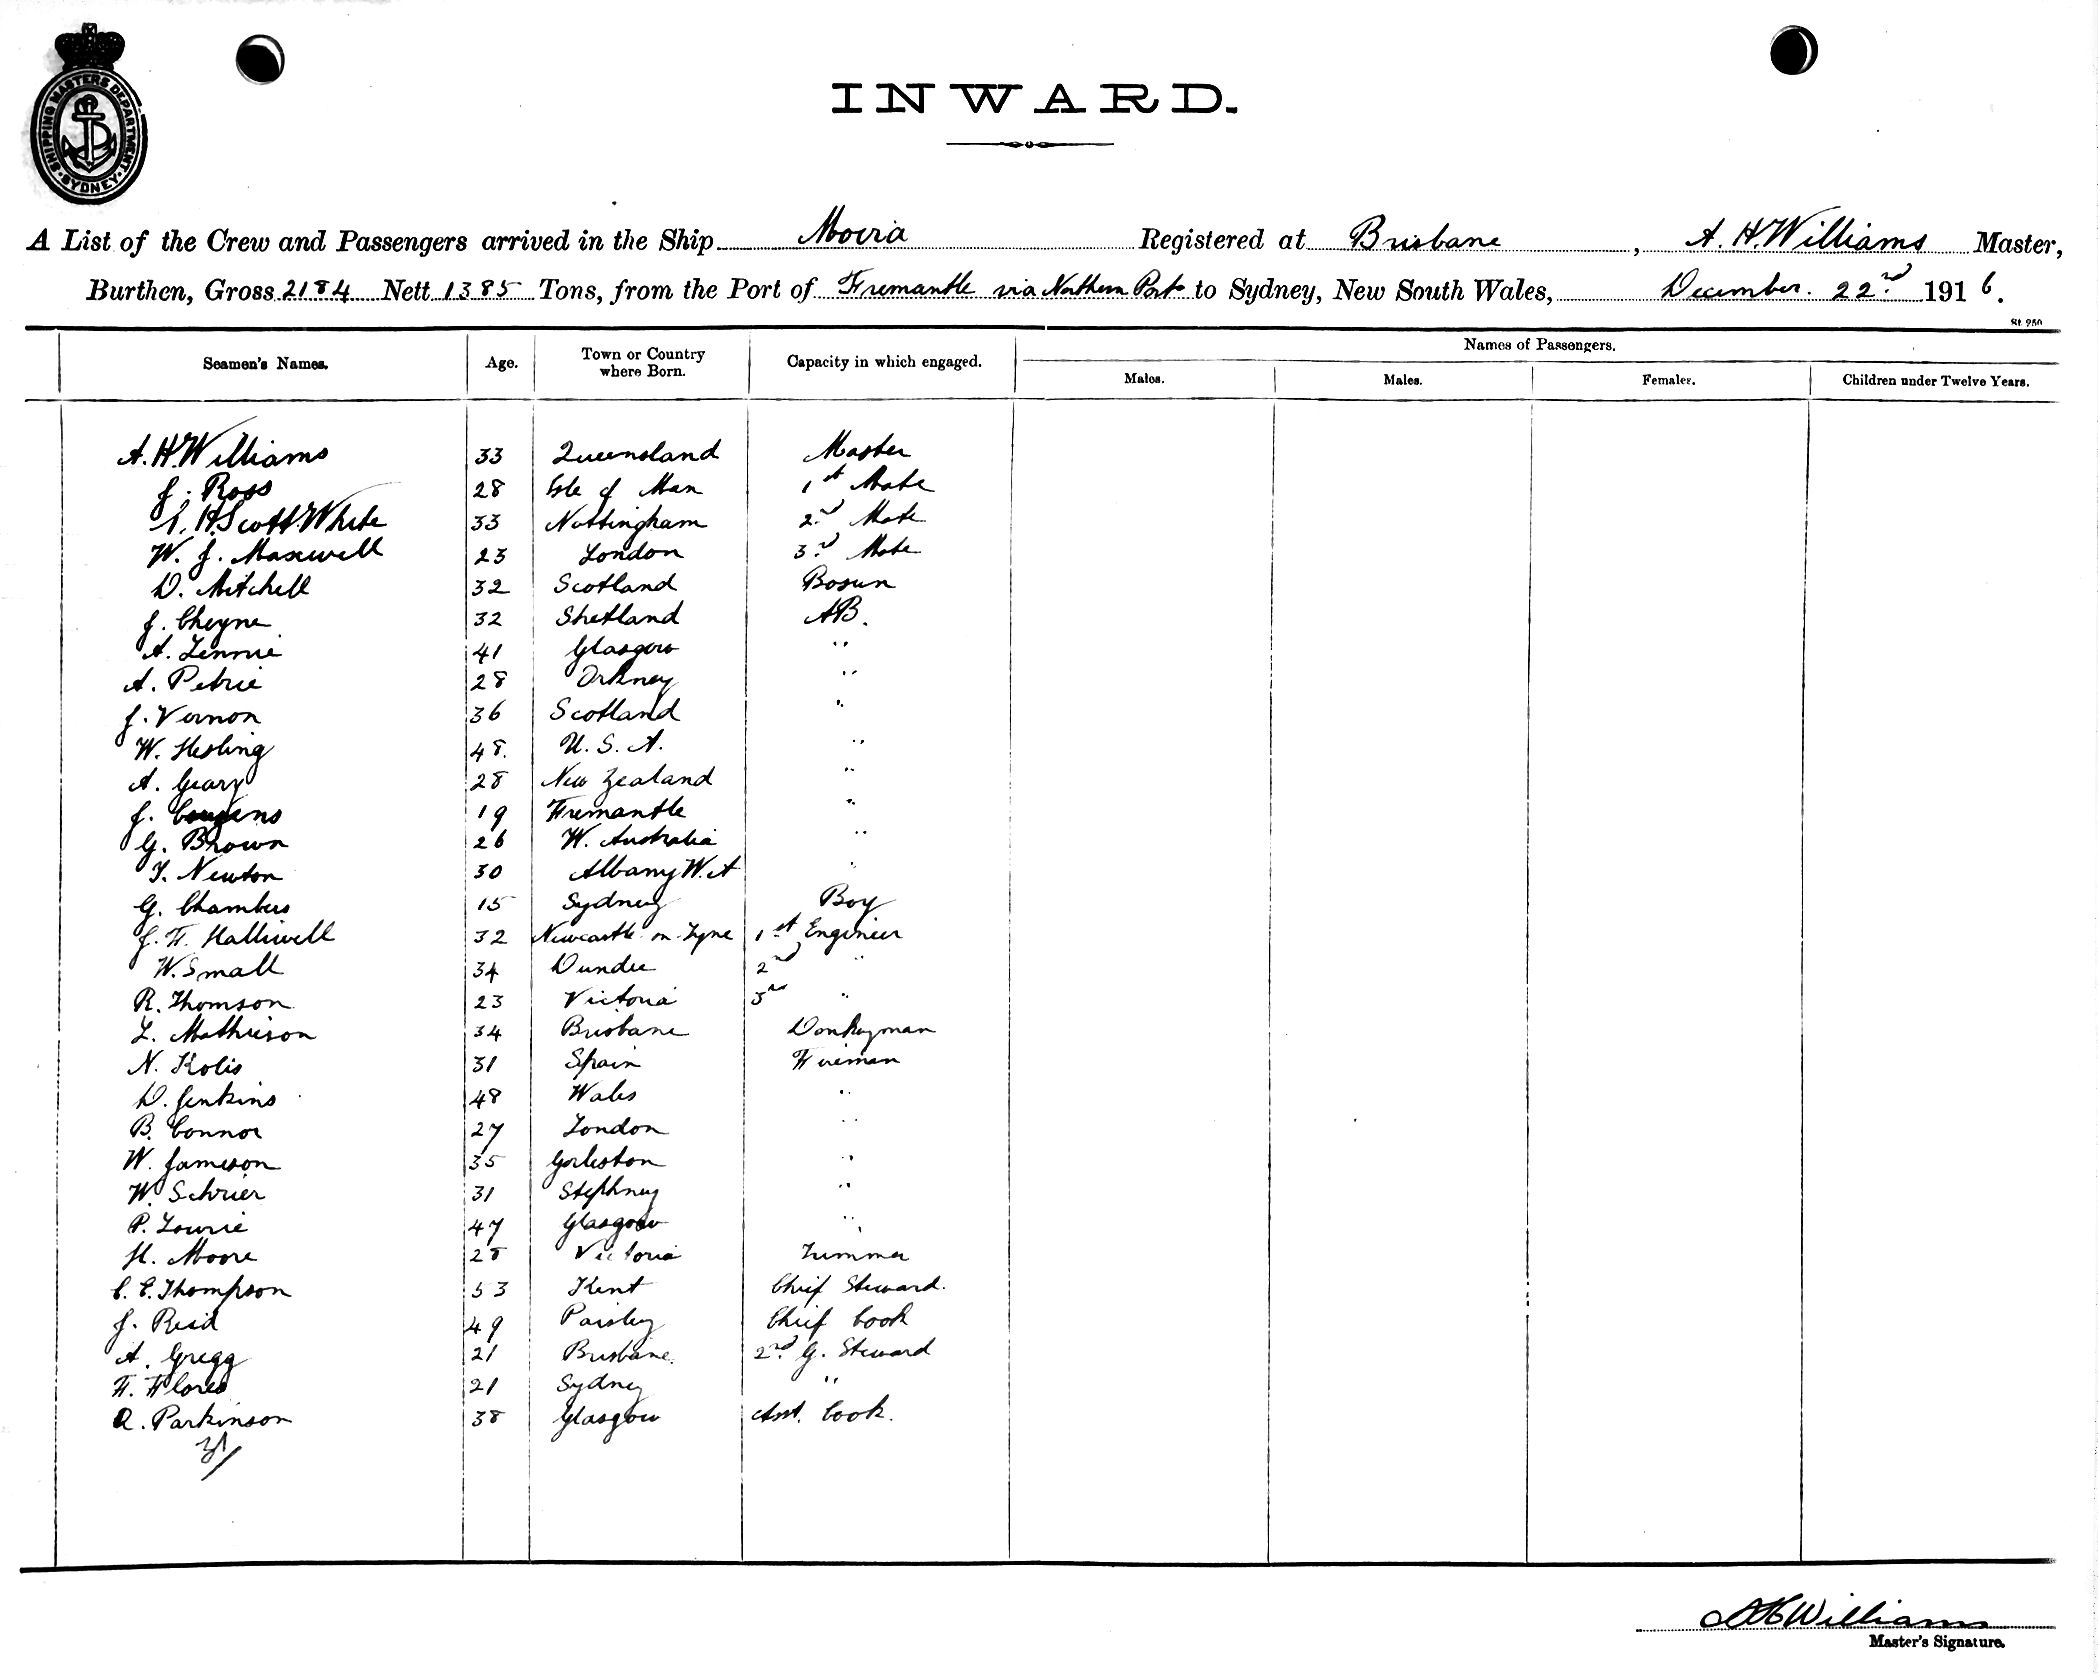 SHIPPING MASTERS DEPARTMENT
SYDNEY
INWARD.
A List of the Crew and Passengers arrived in the Ship Moira Registered at Brisbane, A. H. Williams Master,
Burthen, Gross 2184 Nett 1385 Tons, from the Port of Fremantle via Northern Ports to Sydney, New South Wales, December. 22nd 1916.
St. 250
Seamen's Names. Age. Town or Country where Born. Capacity in which engaged. Names of Passengers.
Males. Males. Females. Children under Twelve Years.
A. H. Williams 33 Queensland Master
J. Ross 28 Isle of Man 1st Mate
H. Scott White 33 Nottingham 2nd Mate
W. J. Maxwell 23 London 3rd Mate
D. Mitchell 32 Scotland Bosun
J. Cheyne 32 Shetland AB.
A. Lennie 41 Glasgow "
A. Petrie 28 Orkney "
J. Vernon 36 Scotland "
W. Hesling 48. U. S. A. "
A. Geary 28 New Zealand "
J. 19 Fremantle "
G. Brown 26 W. Australia "
T. Newton 30 Albany W. A "
G. Chambers 15 Sydney Boy
J. F. Halliwell 32 Newcastle on Tyne 1st Engineer
W. Small 34 Dundee 2nd "
R. Thomson 23 Victoria 3rd "
L. Mathieson 34 Brisbane Donkeyman
N. Kolis 31 Spain Fireman
D. Jenkins 48 Wales "
B. Connor 27 London "
W. Jameson 35 Gorleston "
W. Schrier 31 Stephney "
P. Lowrie 47 Glasgow "
H. Moore 28 Victoria Trimmer
C. E. Thompson 53 Kent Chief Steward.
J. Reid 49 Paisley Chief Cook
A. Gregg 21 Brisbane. 2nd G. Steward
F. Flores 21 Sydney "
A. Parkinson 38 Glasgow Asst. Cook.
31/
A H Williams
Master's Signature.